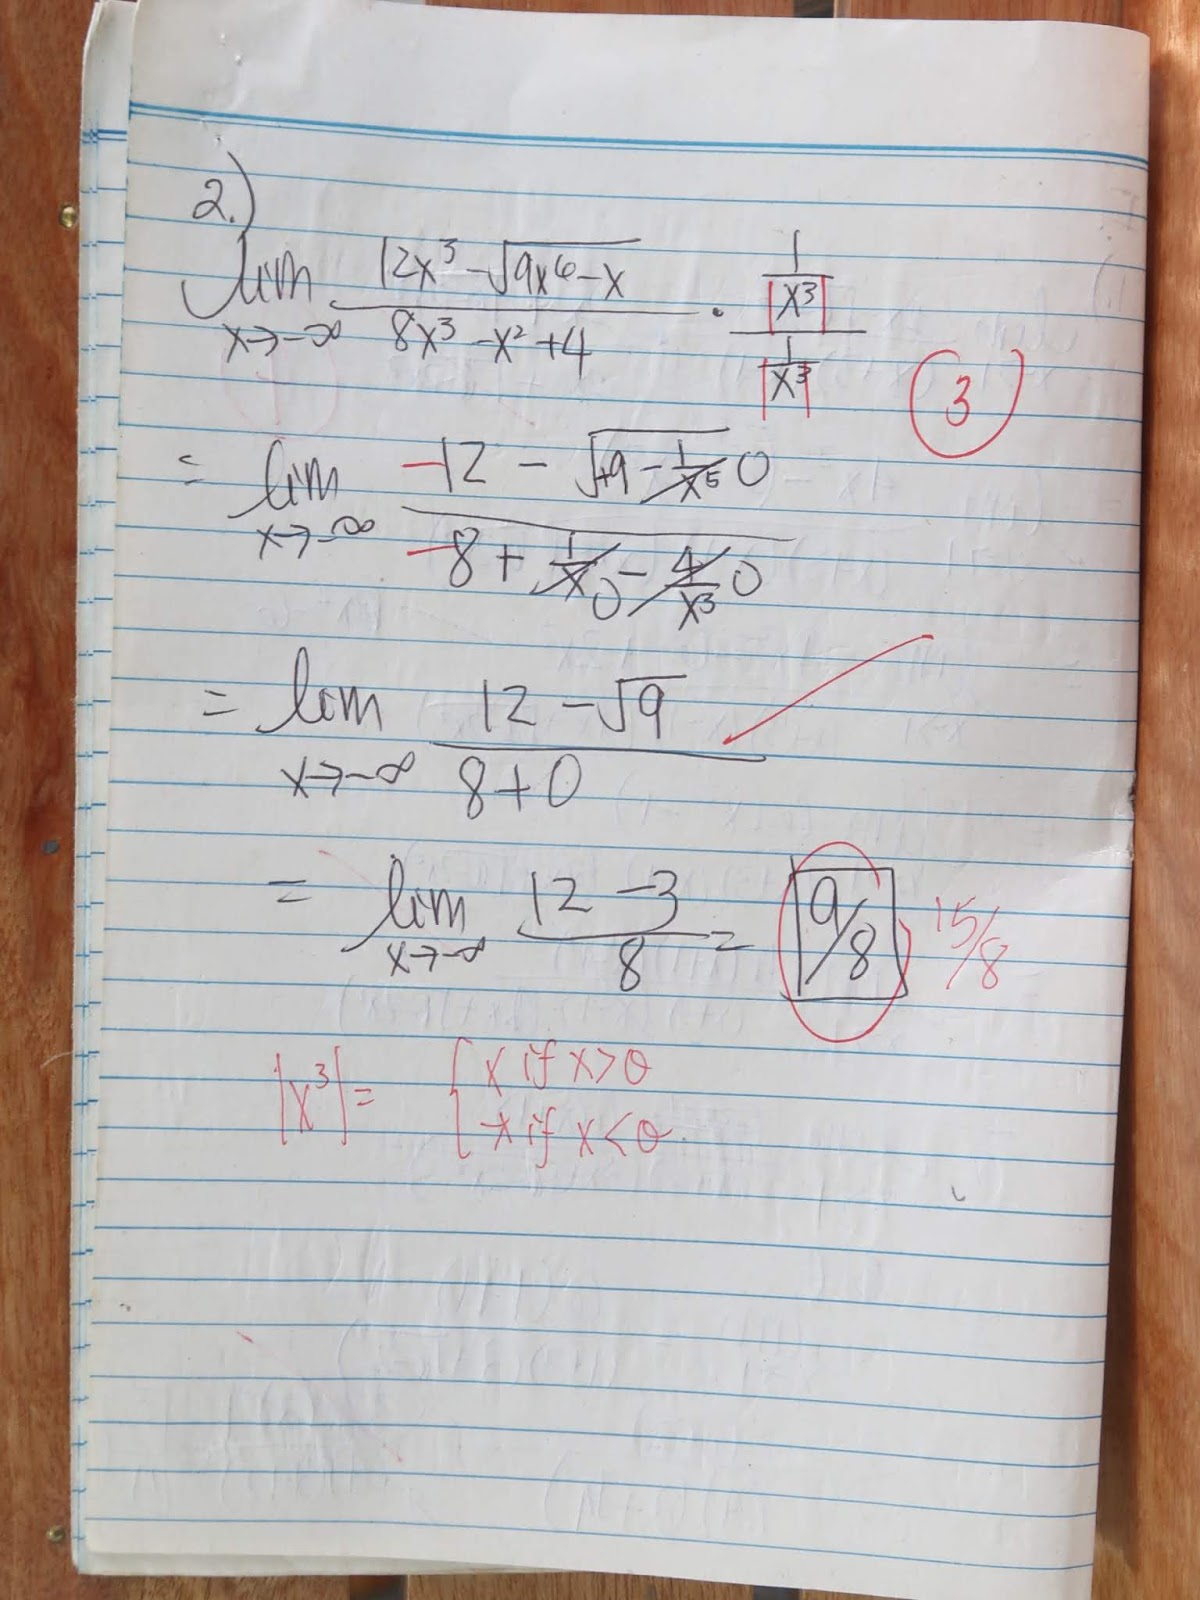 2.)
lim x→-∞ (12x³ - √(9x⁶ - x)) / (8x³ - x² + 4) · (1/|x³|) / (1/|x³|)
3
= lim x→-∞ (-12 - √(+9 - 1/x⁵ 0)) / (-8 + 1/x 0 - 4/x³ 0)
= lim x→-∞ (12 - √9) / (8 + 0)
= lim x→-∞ (12 - 3) / 8 = 9/8 15/8
|x³| = { x if x > 0
-x if x < 0